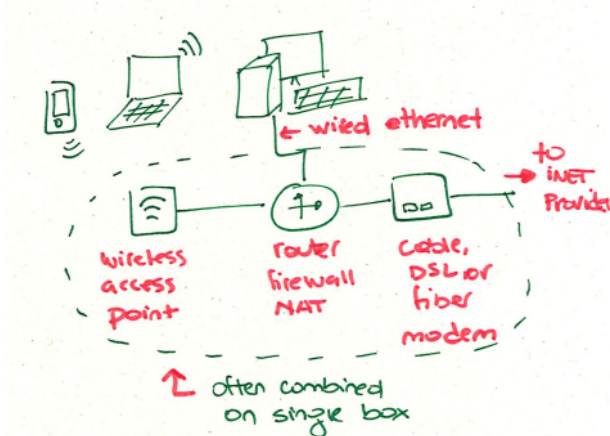 ← wired ethernet
to
→ iNET
Provider
wireless
access
point
router
firewall
NAT
cable,
DSL or
fiber
modem
often combined
on single box